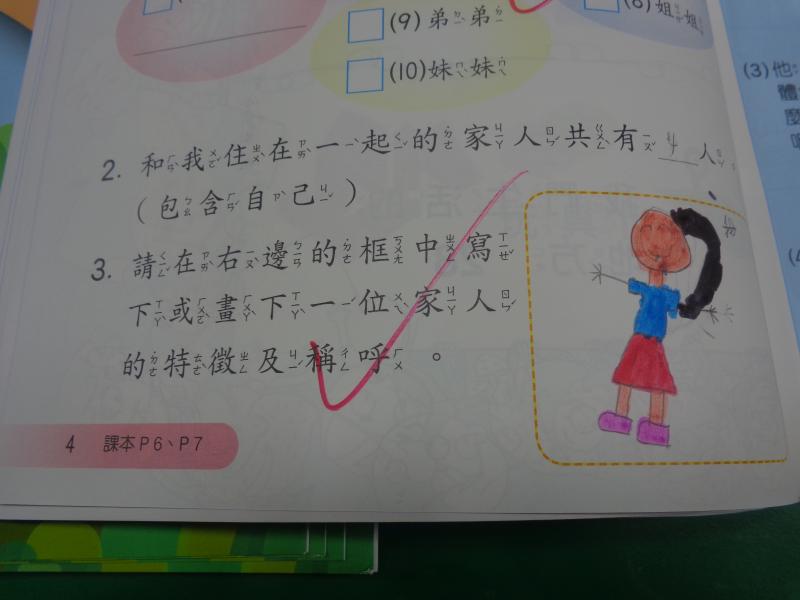 (9)弟弟
(8)姐姐
(10)妹妹
(3)他:
2. 和我住在一起的家人共有 4 人,
(包含自己)
3. 請在右邊的框中寫
下或畫下一位家人
的特徵及稱呼。
4 課本P6、P7